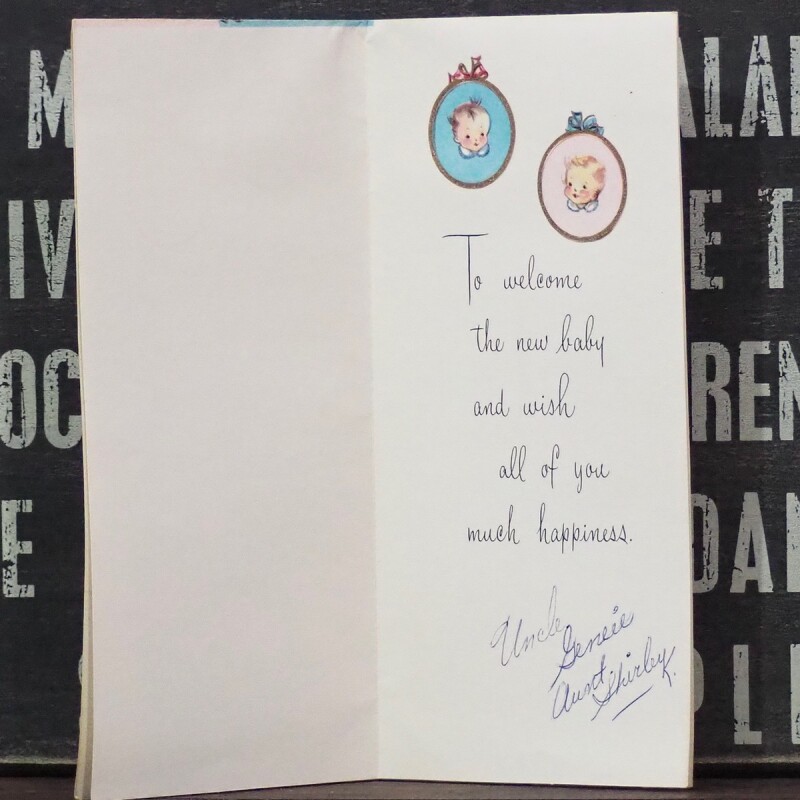 To welcome
the new baby
and wish
all of you
much happiness.
Uncle
Geneie
Aunt Shirley.
M
ALAN
IV
E T
OC
REN
E
DAN
PL